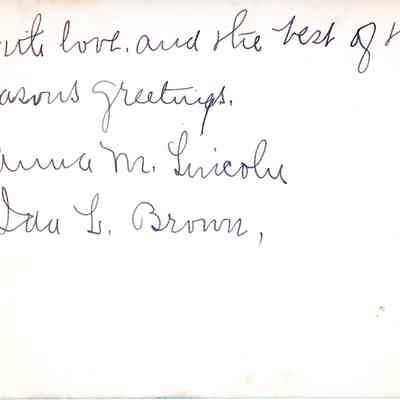 with love. and the best of t
easons greetings.
Anna M. Lincoln
Ida L. Brown,